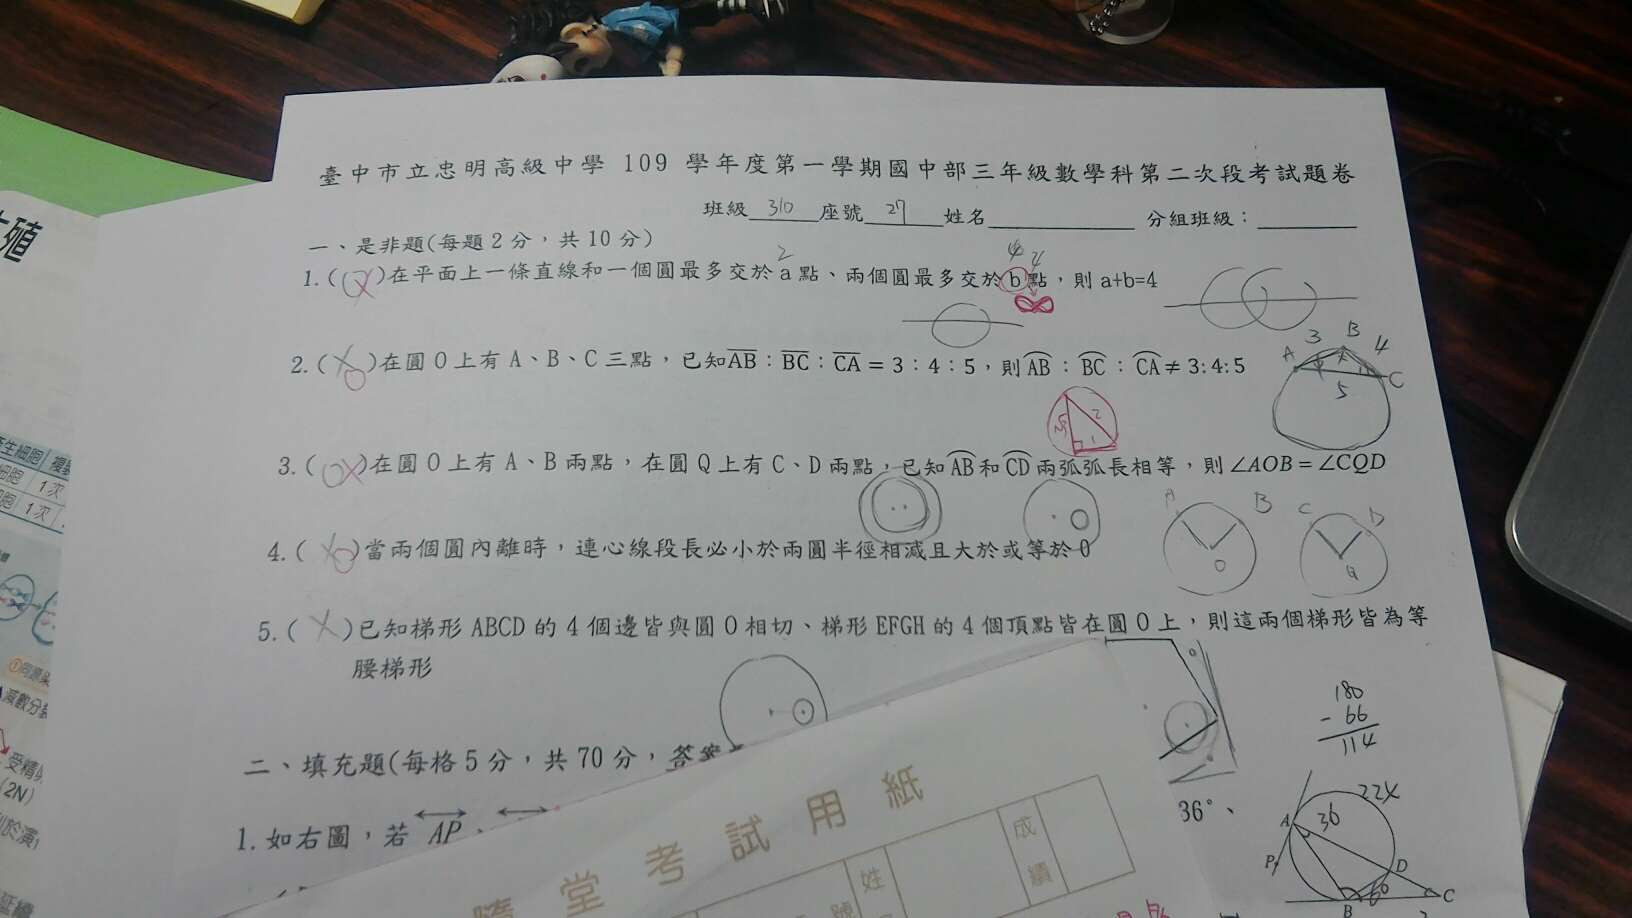 臺中市立忠明高級中學 109 學年度第一學期國中部三年級數學科第二次段考試題卷
班級 310 座號 27 姓名 分組班級：
一、是非題(每題 2 分，共 10 分)
2
4 4
1.( O X )在平面上一條直線和一個圓最多交於 a 點、兩個圓最多交於 b 點，則 a+b=4
∞
3 B 4
A
C
5
2.( X O )在圓 O 上有 A、B、C 三點，已知AB：BC：CA = 3：4：5，則 AB：BC：CA ≠ 3:4:5
√3 2
1
3.( O X )在圓 O 上有 A、B 兩點，在圓 Q 上有 C、D 兩點，已知 AB 和 CD 兩弧弧長相等，則 ∠AOB = ∠CQD
A B C D
O Q
4.( X O )當兩個圓內離時，連心線段長必小於兩圓半徑相減且大於或等於 0
5.( X )已知梯形 ABCD 的 4 個邊皆與圓 O 相切、梯形 EFGH 的 4 個頂點皆在圓 O 上，則這兩個梯形皆為等
腰梯形
180
- 66
114
二、填充題(每格 5 分，共 70 分，答案
1. 如右圖，若 AP、
36°、
A 36
P
D
B C
隨堂考試用紙
姓
號
成績
殖
生細胞
1 次
1 次
減數分裂
(2N)